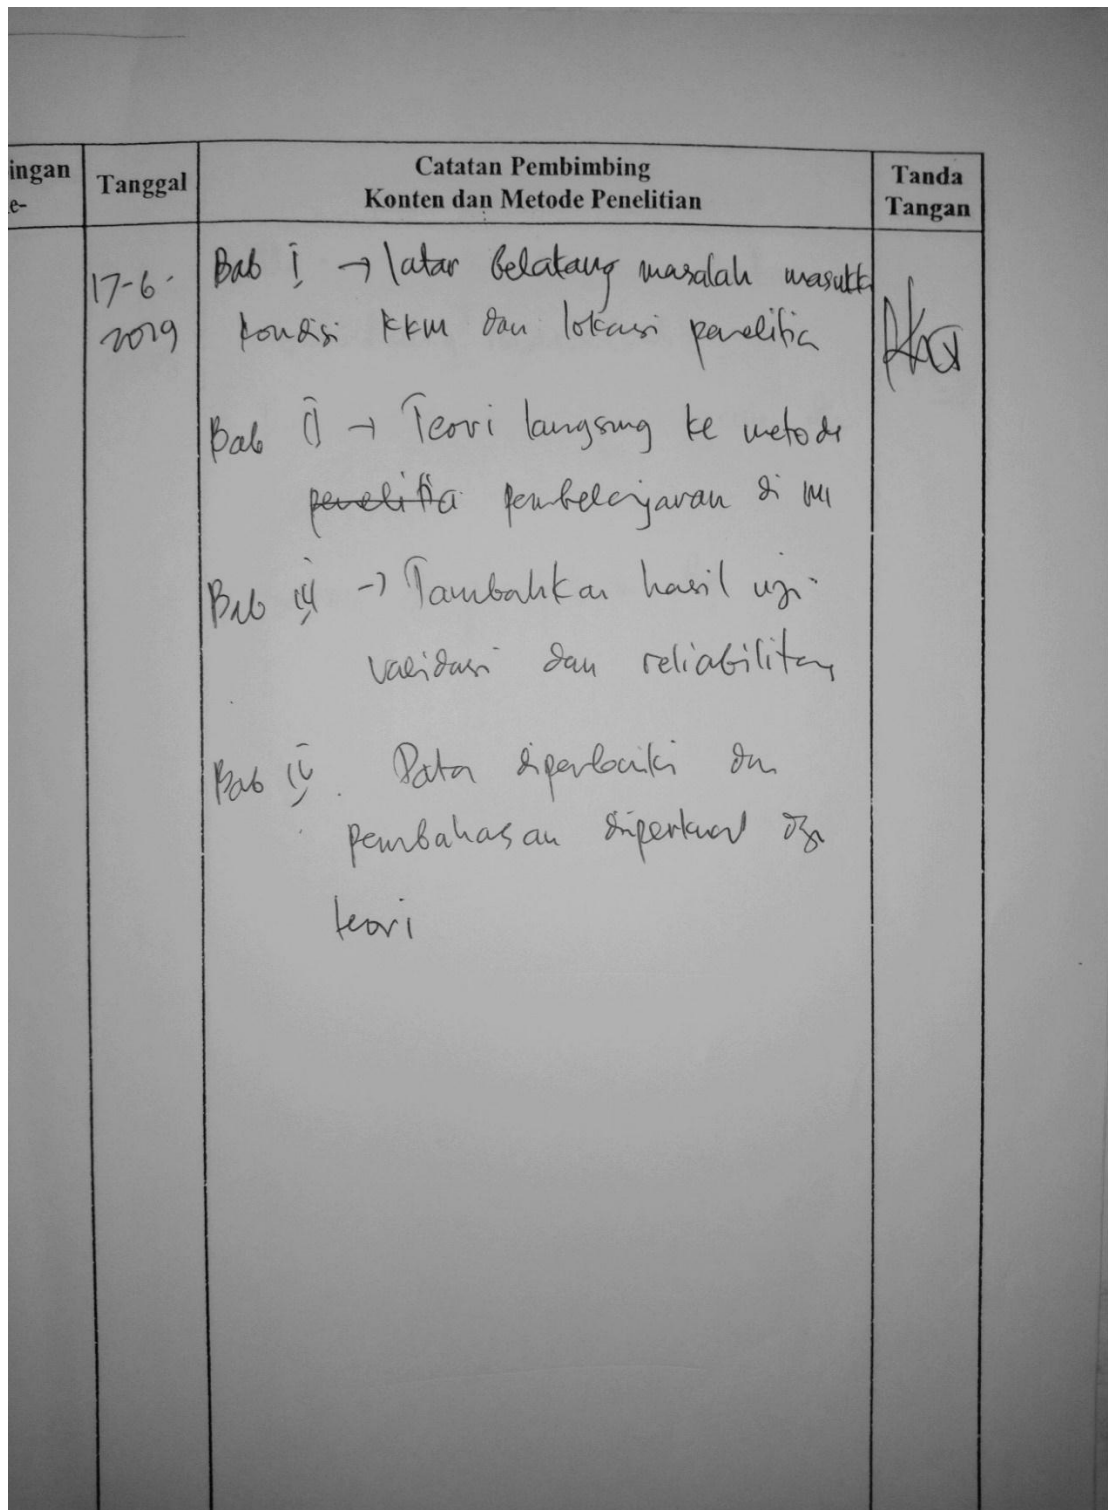 ingan
e-
Tanggal
Catatan Pembimbing
Konten dan Metode Penelitian
Tanda
Tangan
17-6-
2019
Bab I → latar belakang masalah masukk
kondisi KKM dan lokasi penelitia
Bab II → Teori langsung ke metode
penelitia pembelajaran di MI
Bab III → Tambahkan hasil uji
validasi dan reliabilitas
Bab IV. Data diperbaiki dan
pembahasan diperkuat dgn
teori